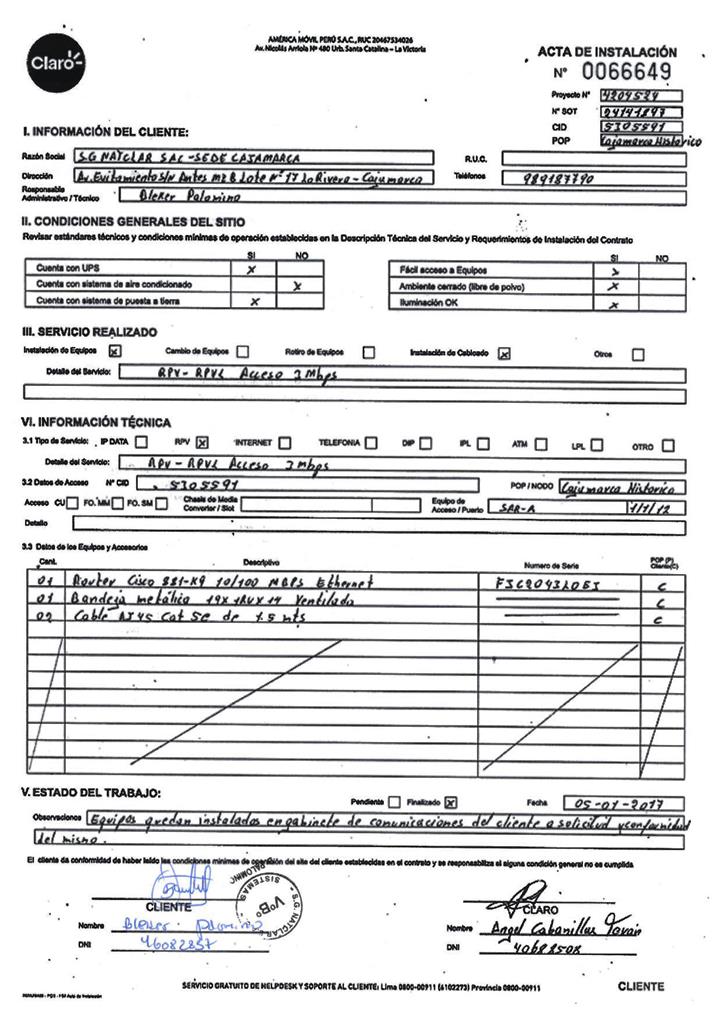 Claro
AMÉRICA MÓVIL PERÚ S.A.C., RUC 20467534026
Av. Nicolás Arriola Nº 480 Urb. Santa Catalina – La Victoria
ACTA DE INSTALACIÓN
N° 0066649
Proyecto N° 4204524
N° SOT 24141897
CID 5305591
POP Cajamarca Historico
I. INFORMACIÓN DEL CLIENTE:
Razón Social S.G NATCLAR SAC - SEDE CAJAMARCA R.U.C.
Dirección Av. Evitamiento S/N Antes MZ B Lote N° 17 La Rivera - Cajamarca Teléfonos 989187790
Responsable Administrativo / Técnico Bleker Palomino
II. CONDICIONES GENERALES DEL SITIO
Revisar estándares técnicos y condiciones mínimas de operación establecidas en la Descripción Técnica del Servicio y Requerimientos de Instalación del Contrato
SI NO SI NO
Cuenta con UPS X Fácil acceso a Equipos X
Cuenta con sistema de aire condicionado X Ambiente cerrado (libre de polvo) X
Cuenta con sistema de puesta a tierra X Iluminación OK X
III. SERVICIO REALIZADO
Instalación de Equipos X Cambio de Equipos Retiro de Equipos Instalación de Cableado X Otros
Detalle del Servicio: RPV - RPVL Acceso 2 Mbps
VI. INFORMACIÓN TÉCNICA
3.1 Tipo de Servicio: IP DATA RPV X INTERNET TELEFONIA DIP IPL ATM LPL OTRO
Detalle del Servicio: RPV - RPVL Acceso 2 Mbps
3.2 Datos de Acceso N° CID 5305591 POP / NODO Cajamarca Historico
Acceso CU FO. MM FO. SM Chasis de Media Converter / Slot Equipo de Acceso / Puerto SAR-A 1/1/12
Detalle
3.3 Datos de los Equipos y Accesorios
Cant. Descriptivo Numero de Serie POP (P) Cliente(C)
01 Router Cisco 881-K9 10/100 MBPS Ethernet C
01 Bandeja metálica Ventilada C
02 Cable RJ45 Cat 5e de 1.5 mts C
V. ESTADO DEL TRABAJO:
Pendiente Finalizado X Fecha 05-01-2017
Observaciones Equipos quedan instalados en gabinete de comunicaciones del cliente a solicitud y conformidad
del mismo.
El cliente da conformidad de haber leído las condiciones mínimas de operación del site del cliente establecidas en el contrato y se responsabiliza si alguna condición general no es cumplida
PALOMINO
SISTEMAS
VºBº
S.G. NATCLAR
CLIENTE CLARO
Nombre Bleker Palomino Nombre Angel Cabanillas
DNI 46082857 DNI 40682508
SERVICIO GRATUITO DE HELPDESK Y SOPORTE AL CLIENTE: Lima 0800-00911 (6102273) Provincia 0800-00911
CLIENTE